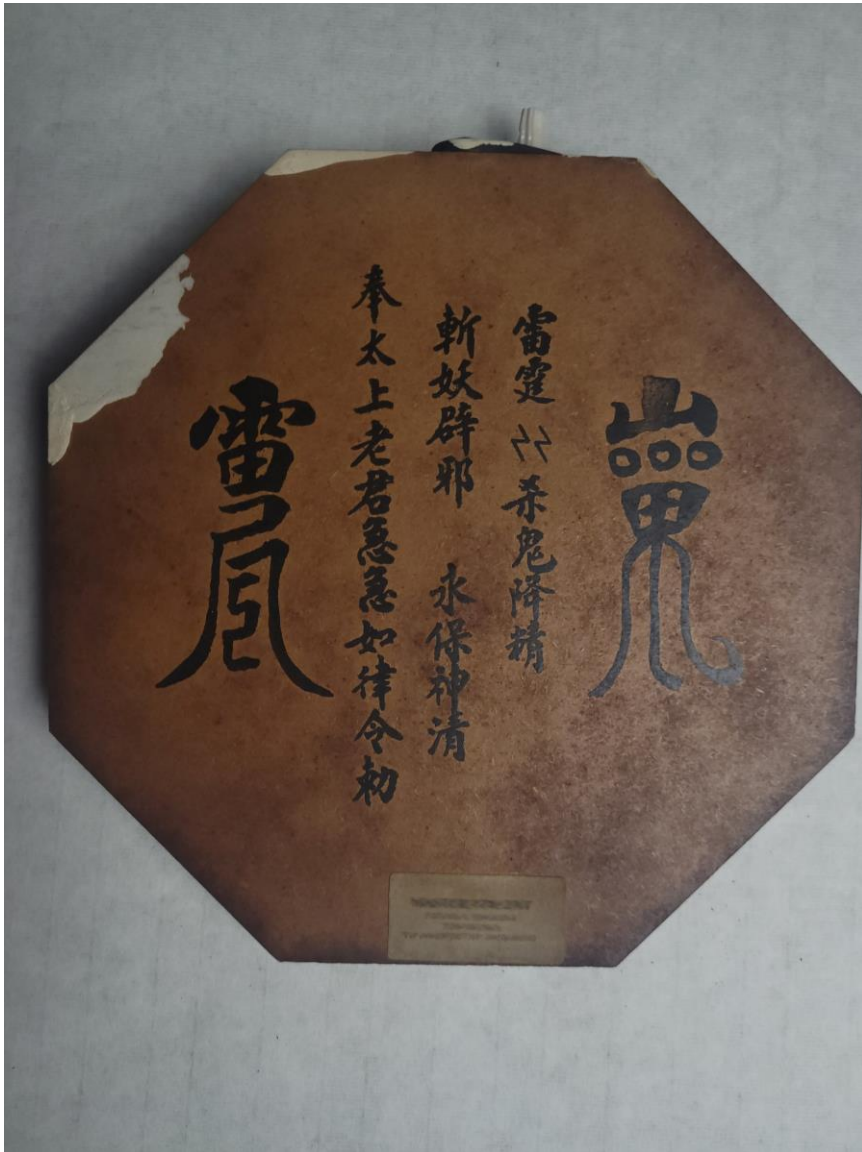 雷霆 ㄣㄣ 杀鬼降精
斬妖辟邪 永保神清
奉太上老君急急如律令勅